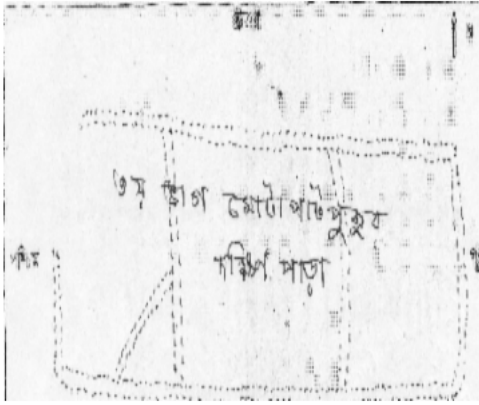 উত্তর
৩য় ভাগ মোটা পাট পুকুর
দক্ষিণ পাড়া
পশ্চিম